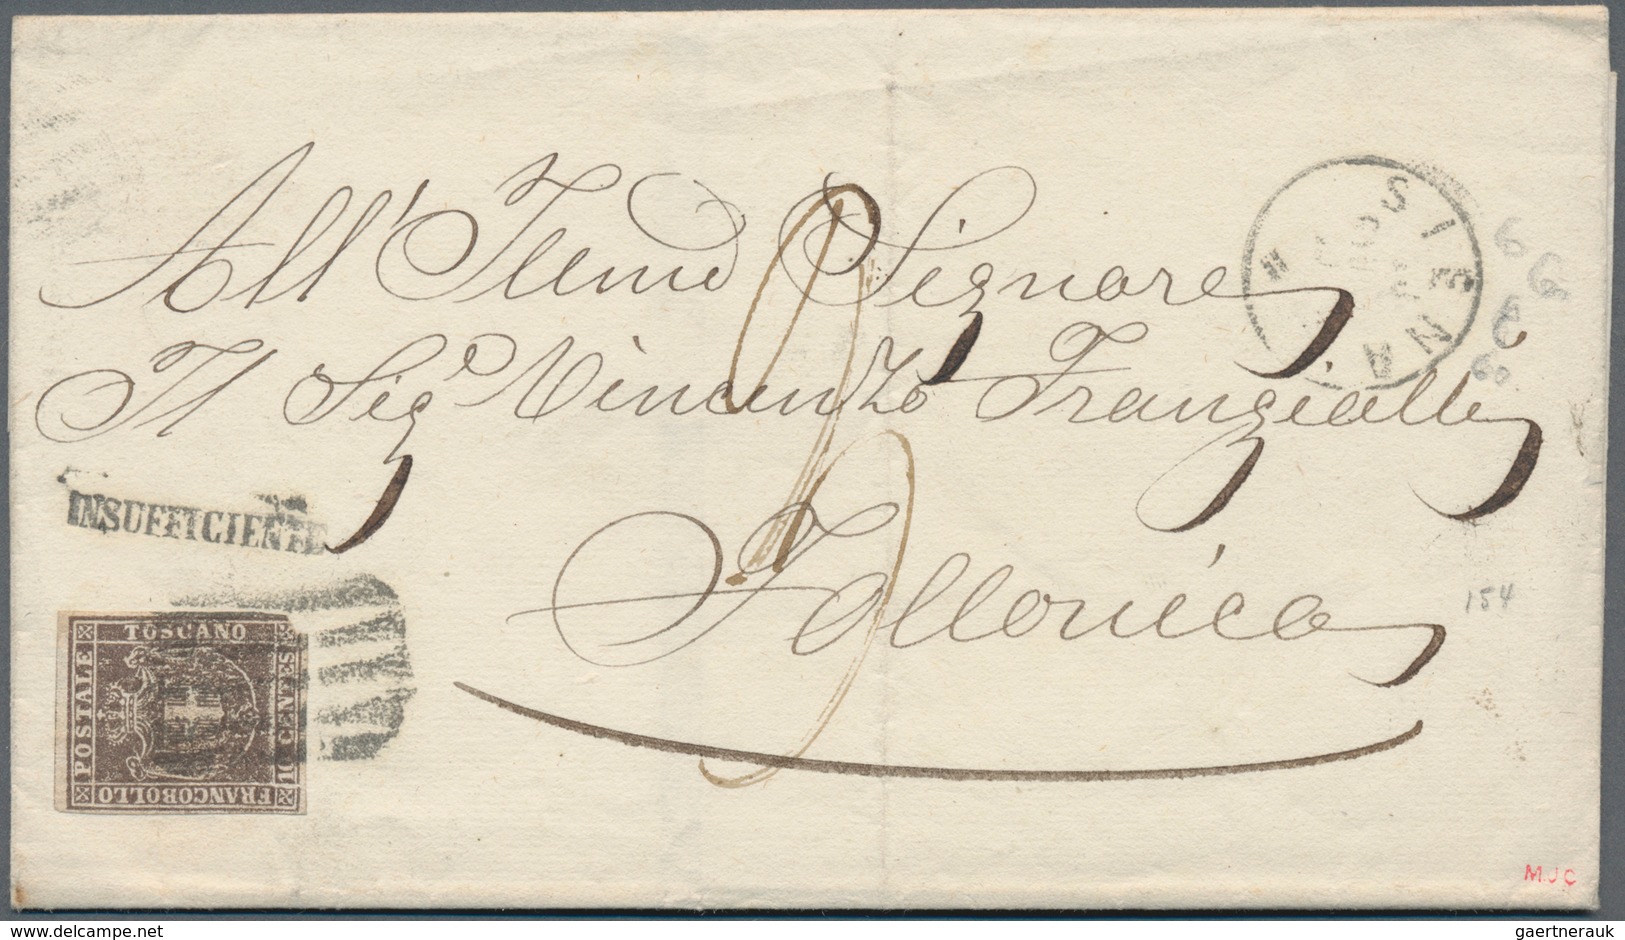 All' Illmo Signore
Il Sigr Vincenzo Frangialli
Follonica
SIENA
INSUFFICIENTE
TOSCANO
POSTALE
10 CENTES
FRANCOBOLLO
60
154
MJC
delcampe.net
gaertnerauk